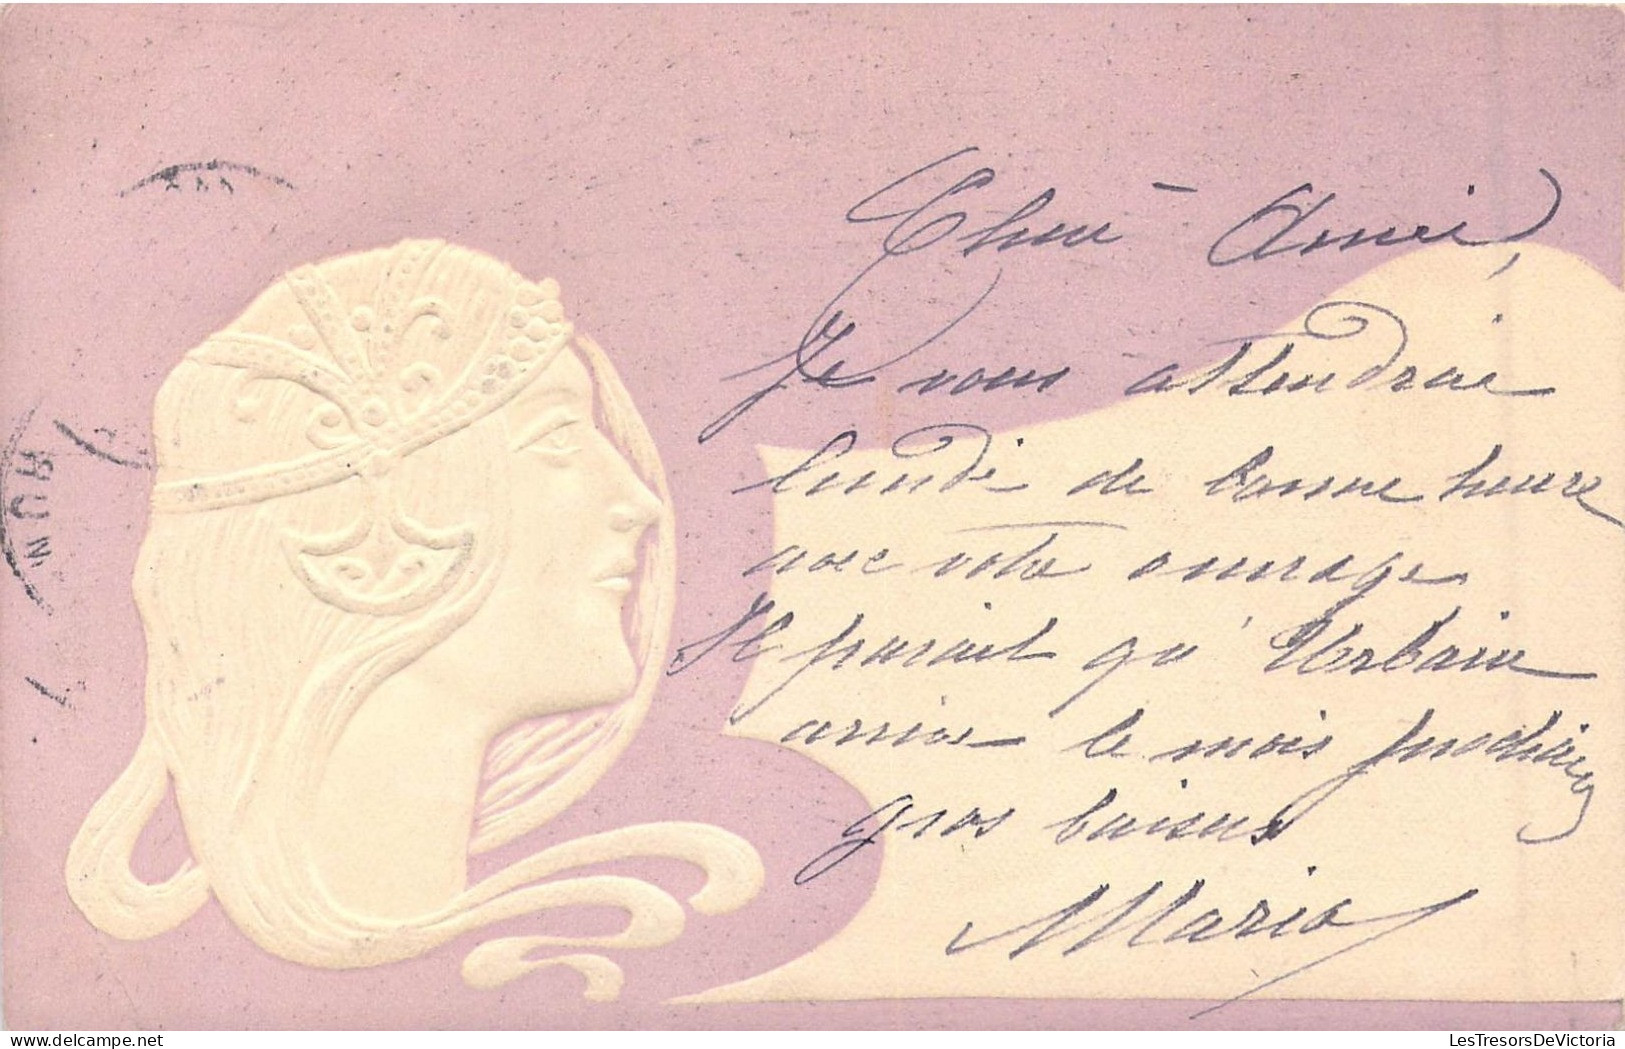 Chère Amie,
Je vous attendrai
lundi de bonne heure
avec votre ouvrage
Il parait qu'Urbain
arrive le mois prochain
gros baisers
Maria
LesTresorsDeVictoria